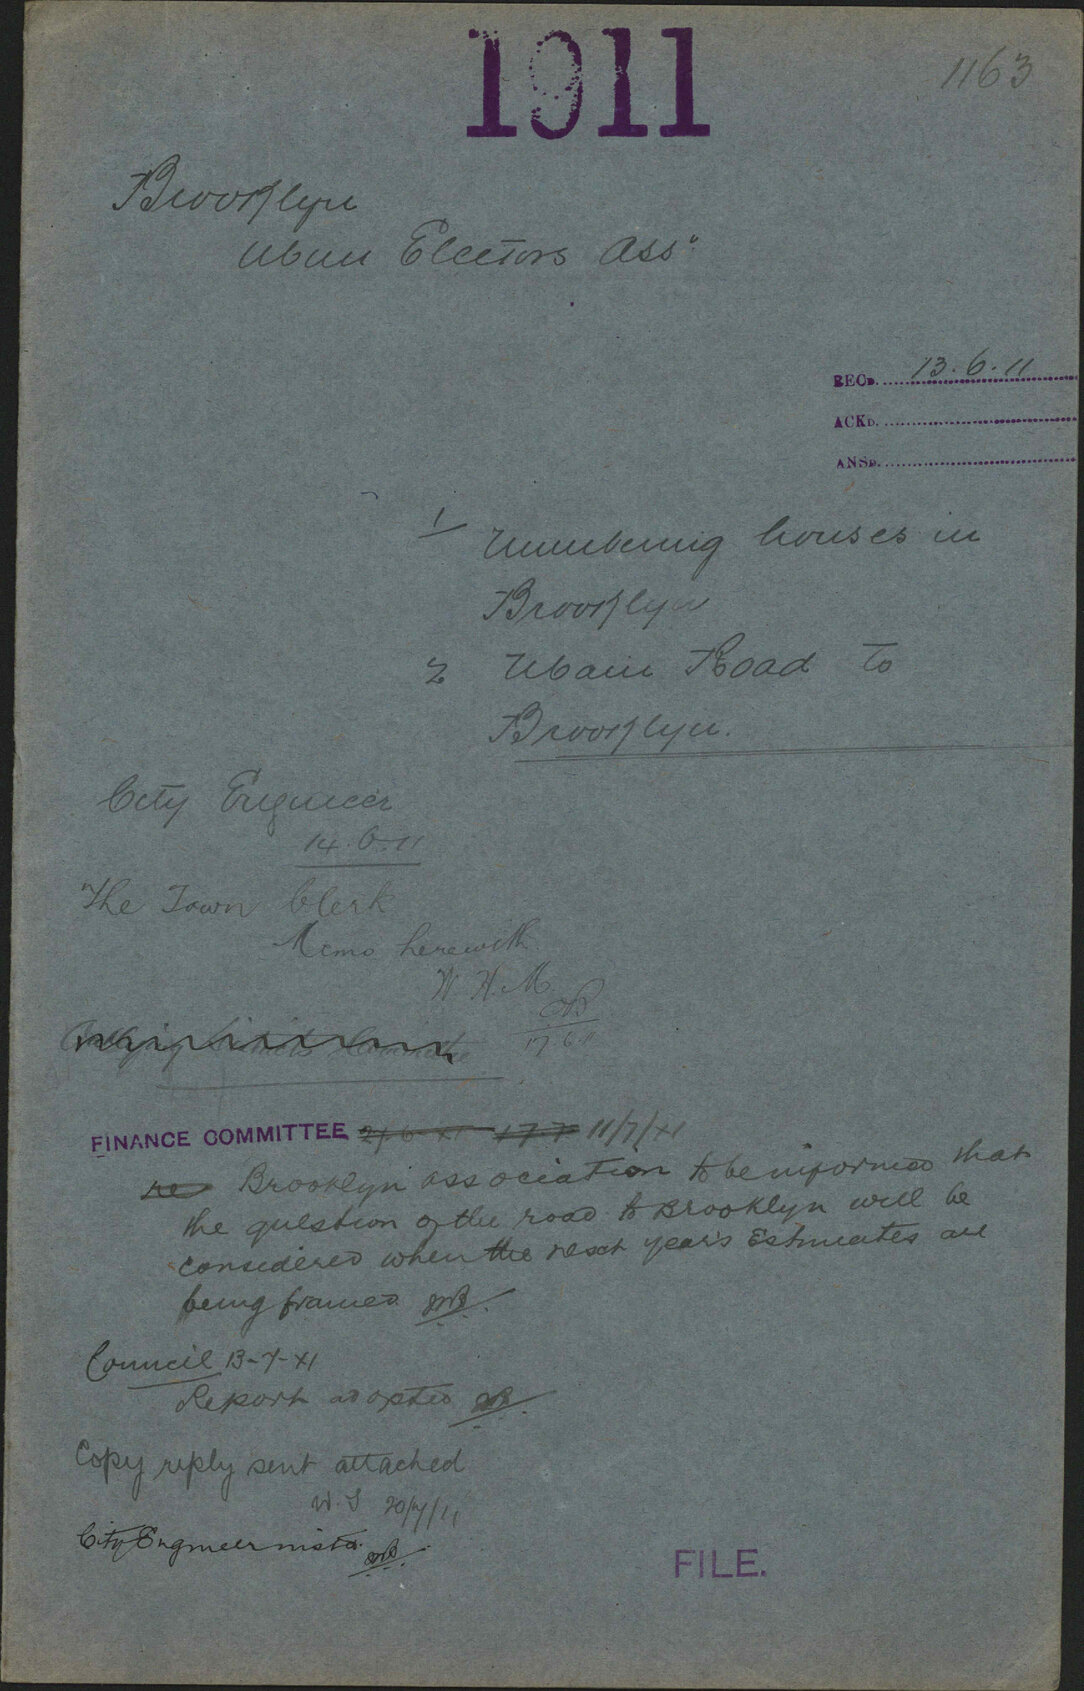 1911
1163
Brooklyn
Electors Assn
RECD. 13.6.11
ACKD.
ANSD.
1 Numbering houses in
Brooklyn
2 Main Road to
Brooklyn.
City Engineer
14.6.11
The Town Clerk
Memo herewith
W.H.M.
17 6 11
FINANCE COMMITTEE 11/7/XI
re Brooklyn association to be informed that
the question of the road to Brooklyn will be
considered when the next year's Estimates are
being framed
Council 13-7-XI
Report adopted
Copy reply sent attached
20/7/11
City Engineer
FILE.